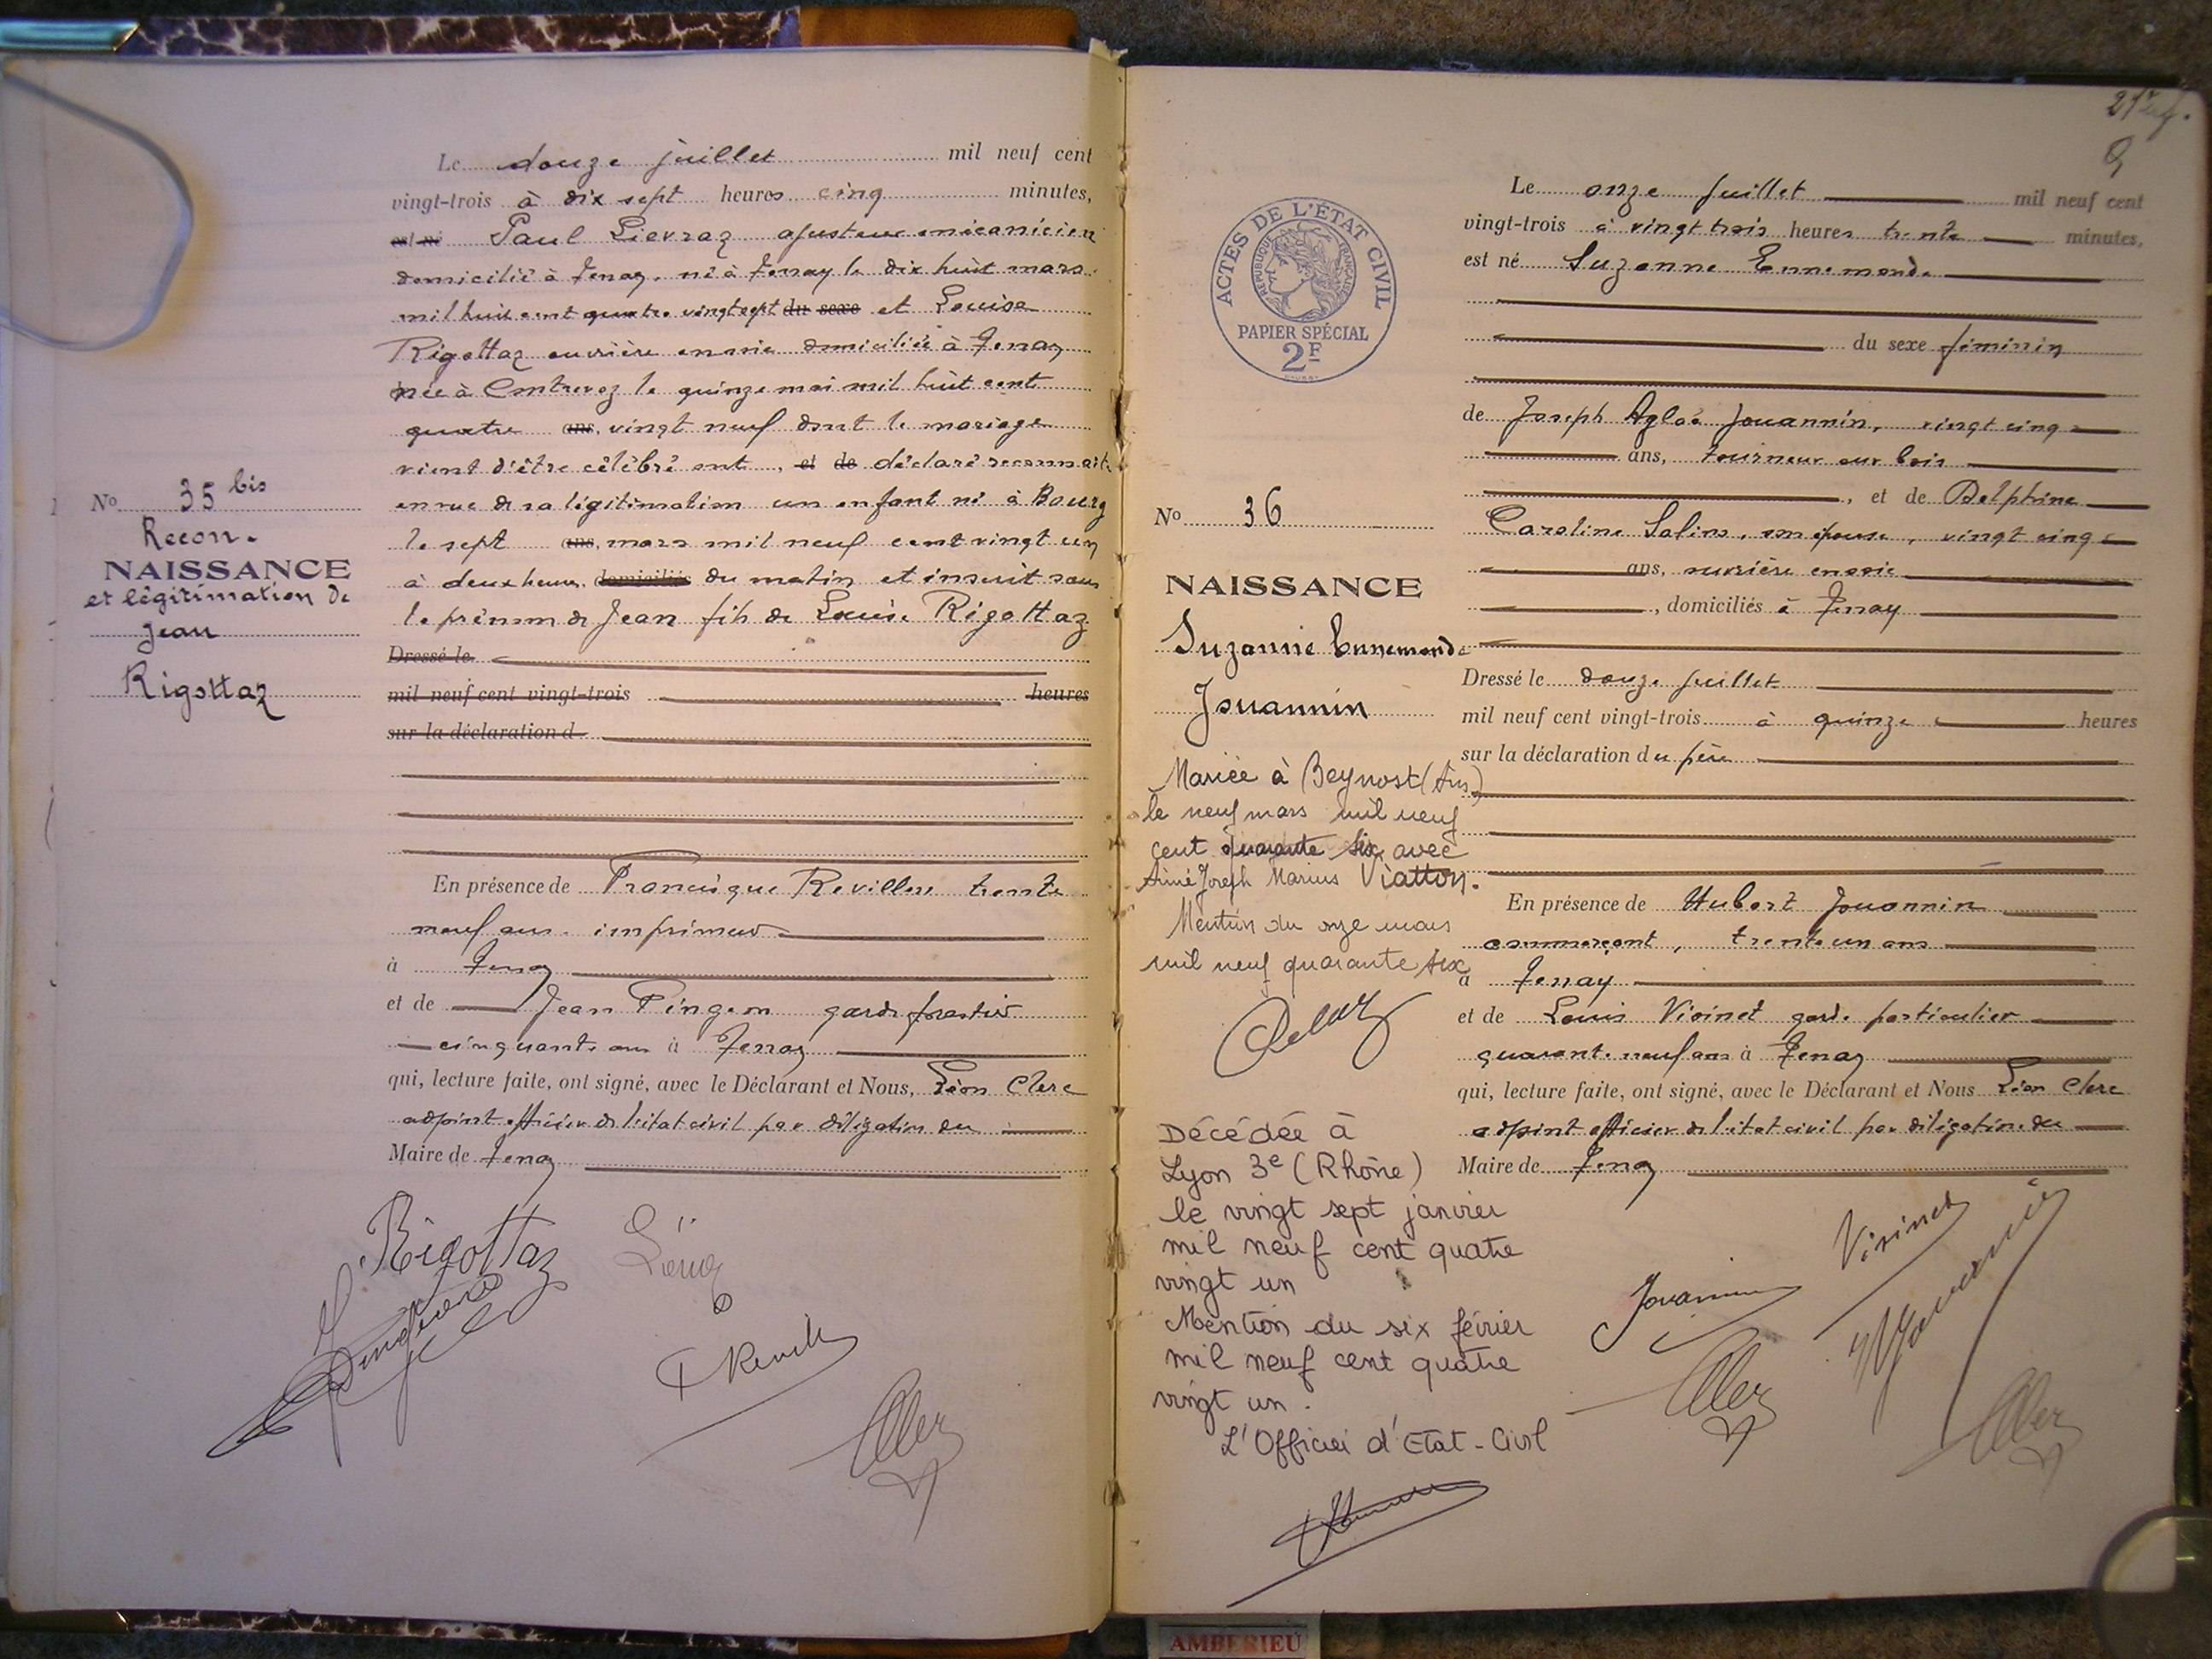 Le douze juillet mil neuf cent
vingt-trois à dix sept heures cinq minutes,
est né Paul Lievraz ajusteur mécanicien
domicilié à Tenay, né à Tenay le dix huit mars
mil huit cent quatre vingt sept du sexe et Louise
Rigottaz ouvrière en soie domiciliée à Tenay
née à Contrevoz le quinze mai mil huit cent
quatre ans, vingt neuf dont le mariage
vient d'être célébré ont, et de déclaré reconnaître
en vue de sa légitimation un enfant né à Bourg
le sept ans, mars mil neuf cent vingt un
à deux heures domiciliés du matin et inscrit sous
le prénom de Jean fils de Louise Rigottaz
Dressé le
mil neuf cent vingt-trois heures
sur la déclaration d
En présence de Francisque Revillon trente
neuf ans. imprimeur
à Tenay
et de Jean Pingeon garde forestier
cinquante ans à Tenay
qui, lecture faite, ont signé, avec le Déclarant et Nous, Léon Clerc
adjoint officier de l'état civil par délégation du
Maire de Tenay
No 35 bis
Recon.
NAISSANCE
et légitimation de
Jean
Rigottaz
L. Rigottaz
21
9
ACTES DE L'ÉTAT CIVIL
RÉPUBLIQUE FRANÇAISE
PAPIER SPÉCIAL
2F
No 36
NAISSANCE
Suzanne Ennemonde
Jouannin
Mariée à Beynost (Ain)
le neuf mars mil neuf
cent quarante six avec
Aimé Joseph Marius Viatton.
Mention du onze mars
mil neuf quarante six
Décédée à
Lyon 3e (Rhône)
le vingt sept janvier
mil neuf cent quatre
vingt un
Mention du six février
mil neuf cent quatre
vingt un.
L'Officier d'Etat-Civil
Le onze juillet mil neuf cent
vingt-trois à vingt trois heures trente minutes,
est né Suzanne Ennemonde
du sexe féminin
de Joseph Aglaé Jouannin, vingt cinq
ans, tourneur sur bois
, et de Delphine
Caroline Salins, son épouse, vingt cinq
ans, ouvrière en soie
, domiciliés à Tenay
Dressé le douze juillet
mil neuf cent vingt-trois à quinze heures
sur la déclaration du père
En présence de Hubert Jouannin
commerçant, trente un ans
à Tenay
et de Louis Visinet garde particulier
quarante neuf ans à Tenay
qui, lecture faite, ont signé, avec le Déclarant et Nous Léon Clerc
adjoint officier de l'état civil par délégation du
Maire de Tenay
Visinet
Jouannin
AMBERIEU